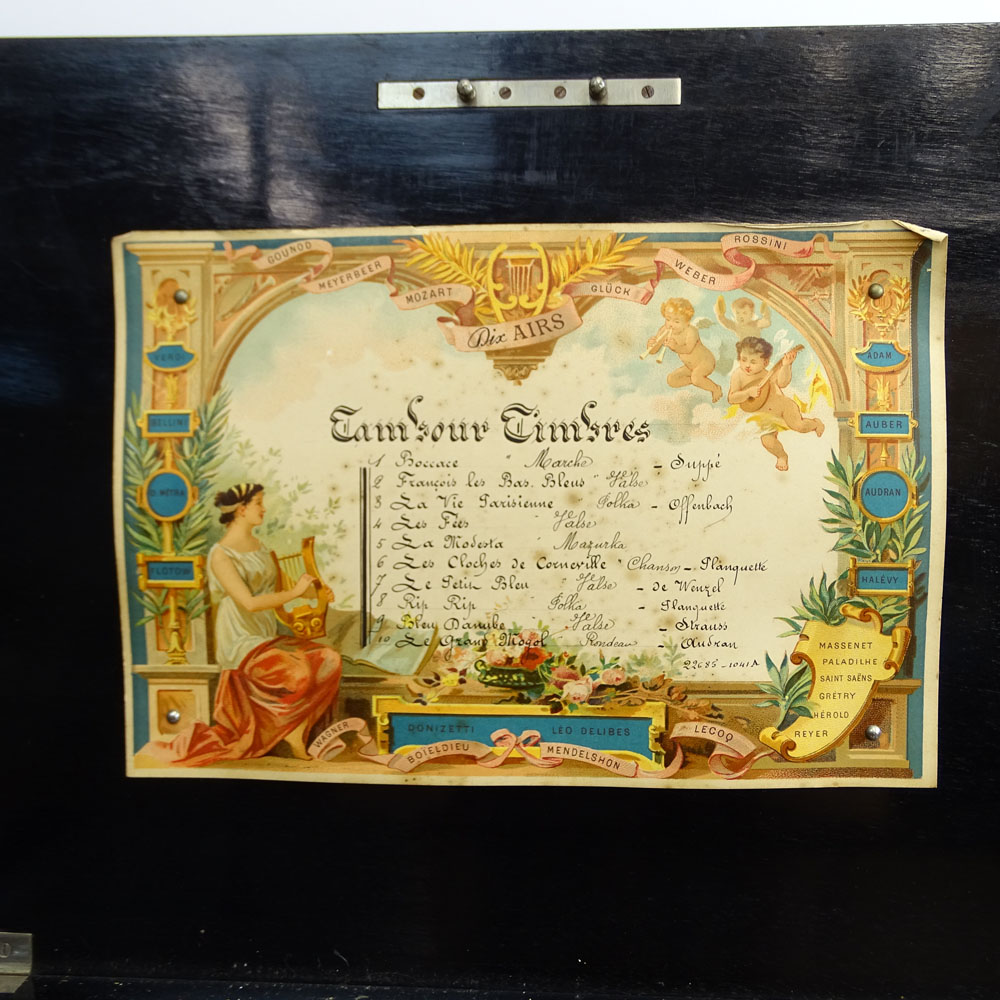 GOUNOD
MEYERBEER
MOZART
GLÜCK
WEBER
ROSSINI
Dix AIRS
VERDI
BELLINI
O. MÉTRA
FLOTOW
ADAM
AUBER
AUDRAN
HALÉVY
Tambour Timbres
1 Boccace " Marche - Suppé
2 François les Bas. Bleus " Valse
3 La Vie Parisienne " Polka - Offenbach
4 Les Fées " Valse
5 La Modesta " Mazurka
6 Les Cloches de Corneville " Chanson - Planquette
7 Le Petit Bleu " Valse - de Wenzel
8 Rip Rip " Polka - Planquette
9 Bleu Danube " Valse - Strauss
10 Le Grand Mogol " Rondeau - Audran
22685-1041A
MASSENET
PALADILHE
SAINT SAËNS
GRÉTRY
HÉROLD
REYER
WAGNER
DONIZETTI
LÉO DELIBES
BOÏELDIEU
MENDELSHON
LECOQ